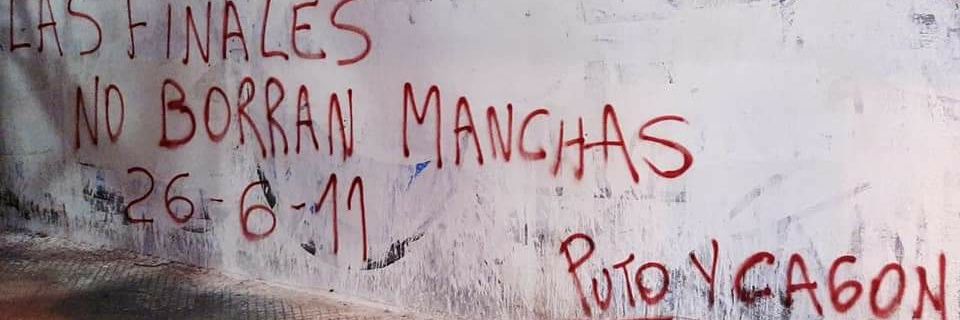 LAS FINALES
NO BORRAN MANCHAS
26-6-11
PUTO Y CAGON